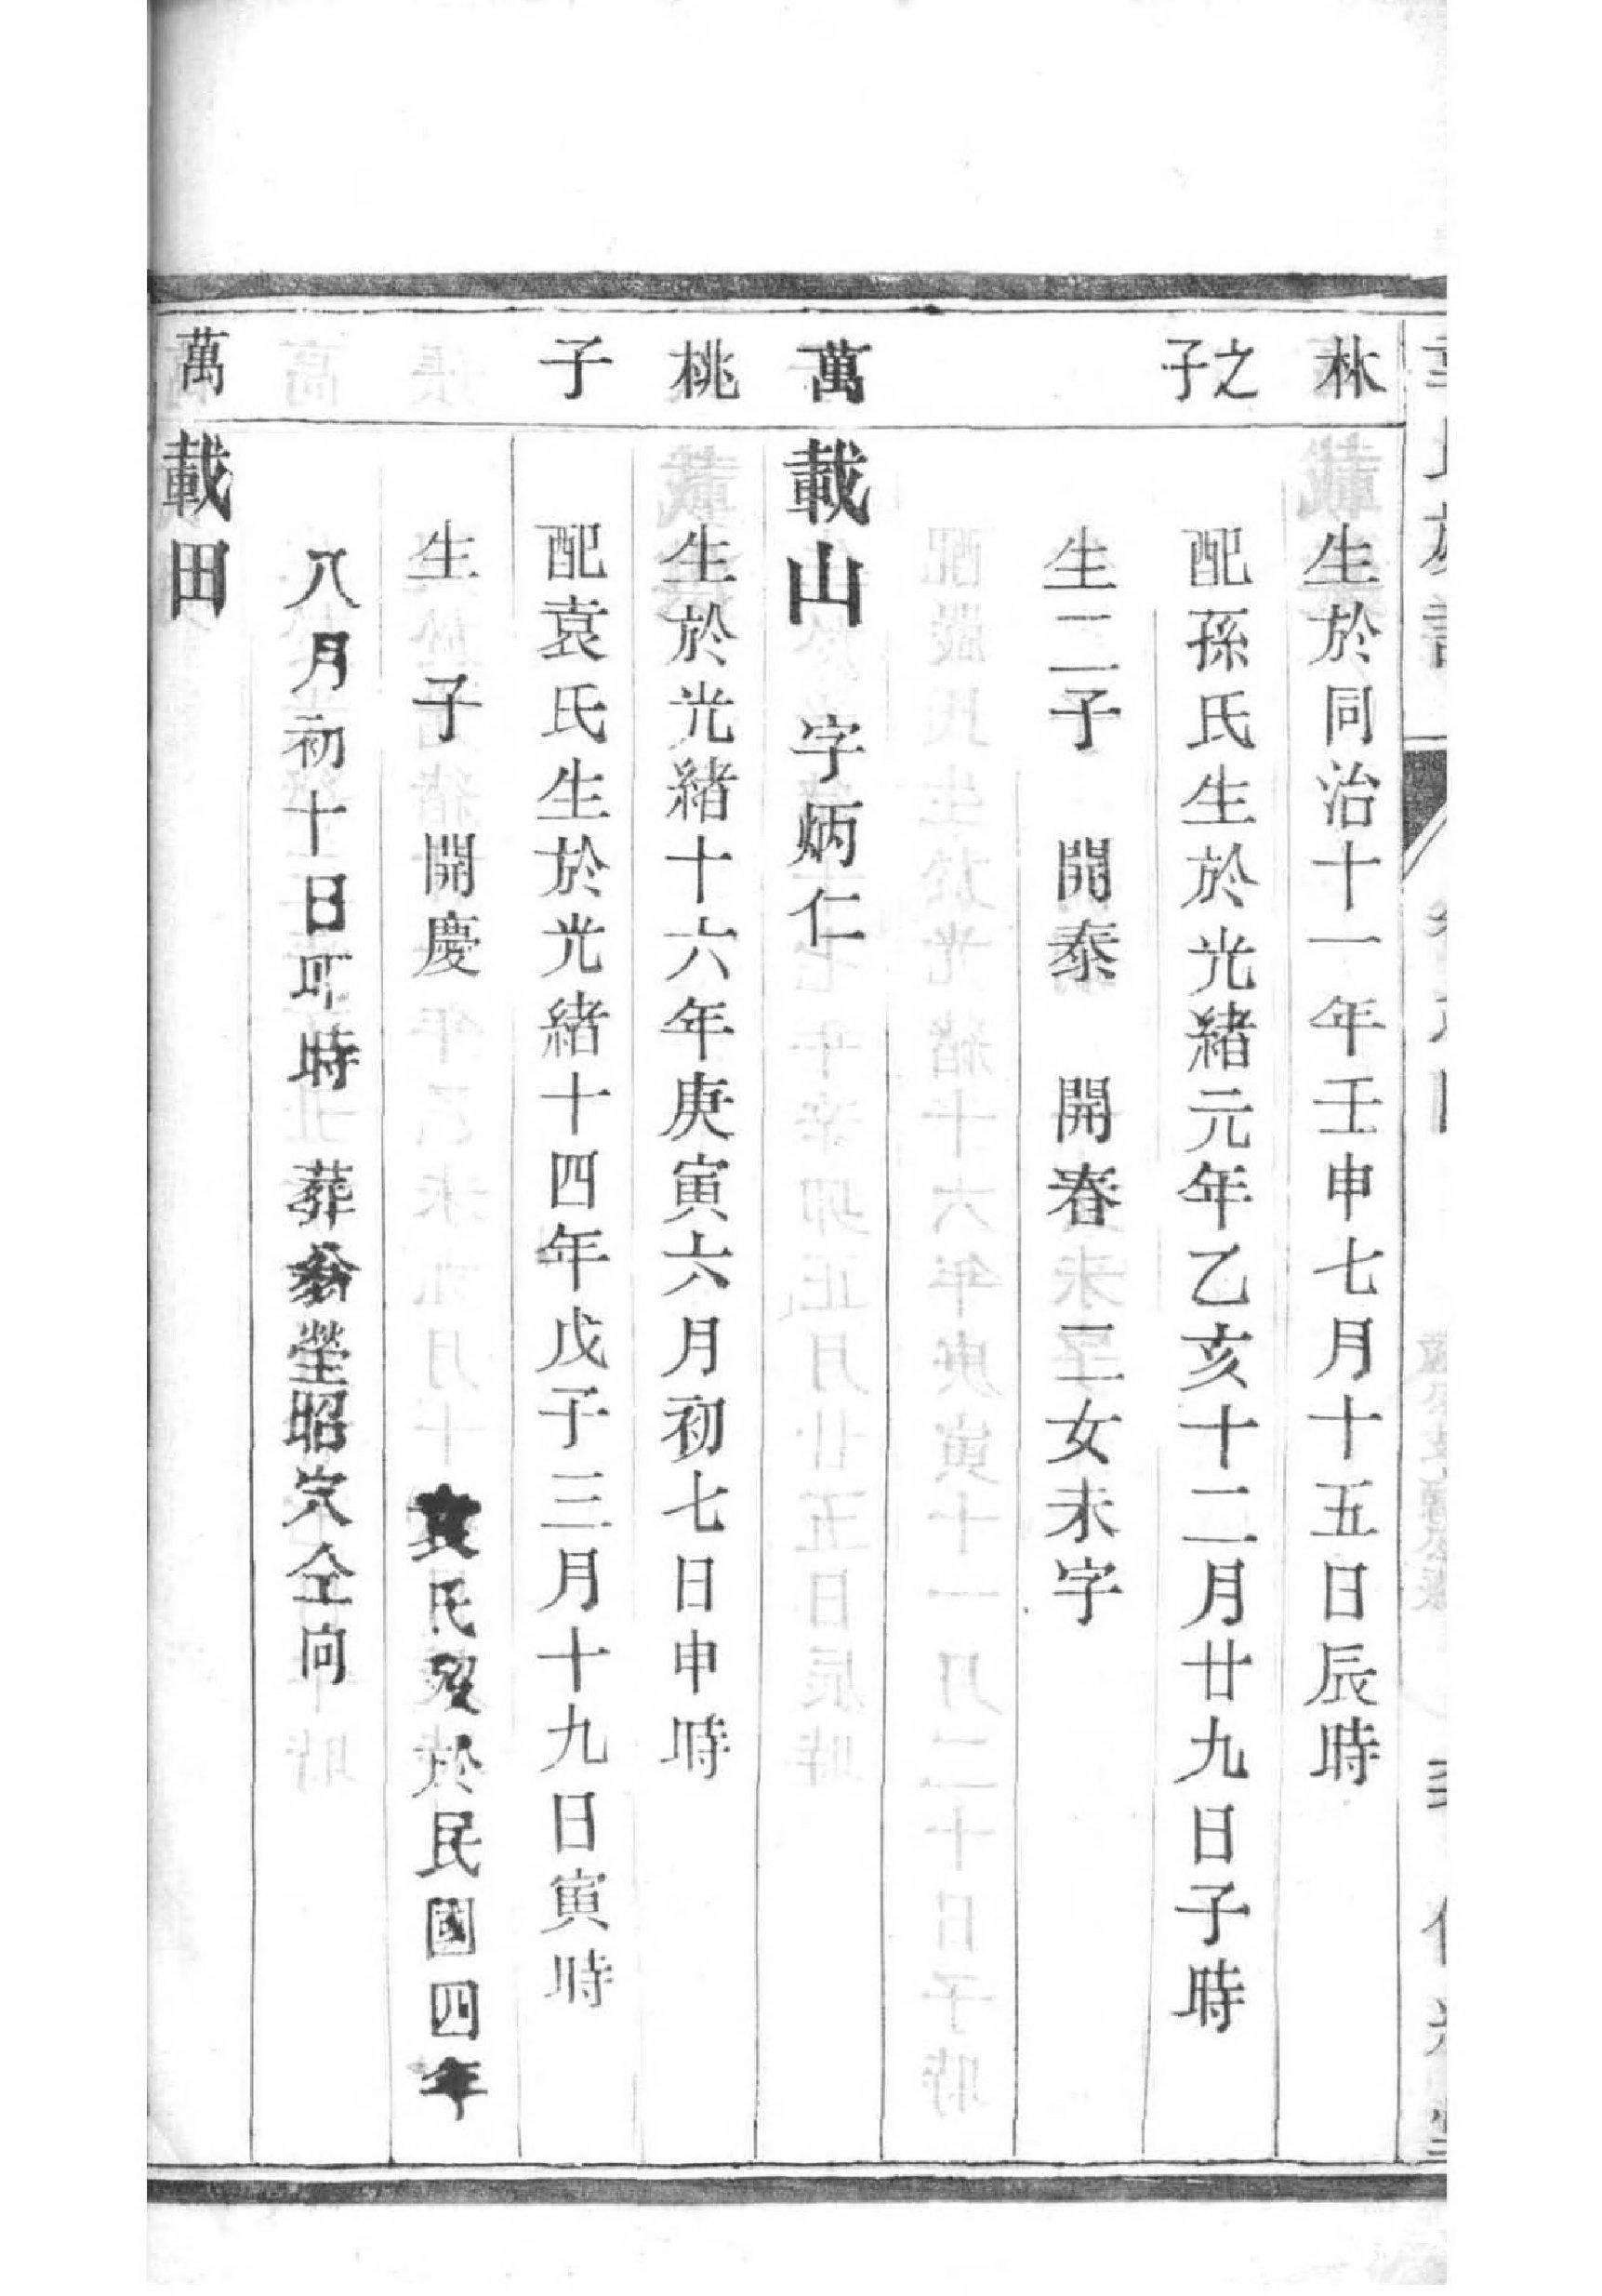 林
生於同治十一年壬申七月十五日辰時
之子
配孫氏生於光緒元年乙亥十二月廿九日子時
生二子 開泰 開春 二女未字
萬
載山 字炳仁
桃
生於光緒十六年庚寅六月初七日申時
子
配袁氏生於光緒十四年戊子三月十九日寅時
生 子 開慶 袁氏歿於民國四年
八月初十日 時 葬 塋昭穴仝向
萬
載田